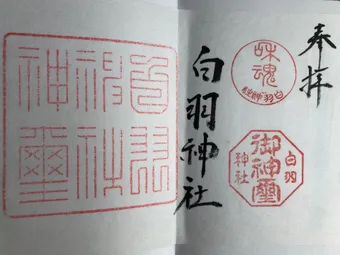 奉拝
味魂
白羽神社
白羽
御神璽
神社
白羽神社
白羽
神社
神璽